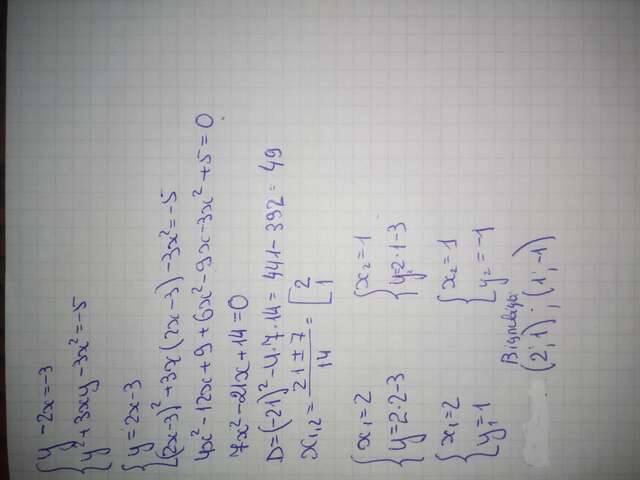 { y - 2x = -3
{ y² + 3xy - 3x² = -5
{ y = 2x - 3
{ (2x-3)² + 3x(2x-3) - 3x² = -5
4x² - 12x + 9 + 6x² - 9x - 3x² + 5 = 0
7x² - 21x + 14 = 0
D = (-21)² - 4·7·14 = 441 - 392 = 49
x₁,₂ = (21 ± 7)/14 = [ 2 1
{ x₁ = 2 { x₂ = 1
{ y = 2·2-3 { y = 2·1-3
{ x₁ = 2 { x₂ = 1
{ y₁ = 1 { y₂ = -1
Відповідь:
(2; 1) ; (1; -1)